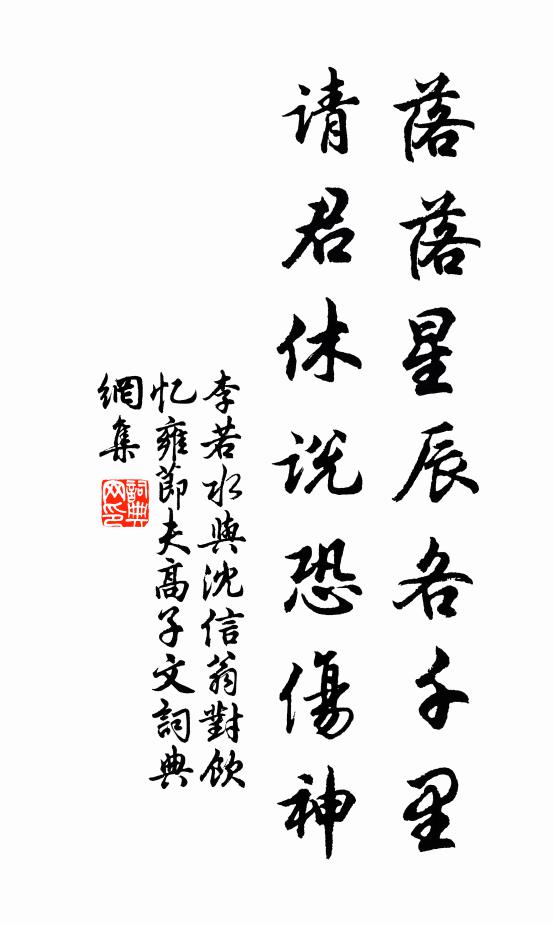 落落星辰各千里
请君休说恐傷神
李若水與沈信翁對飲
忆雍節夫高子文詞典
網集
詞典網印